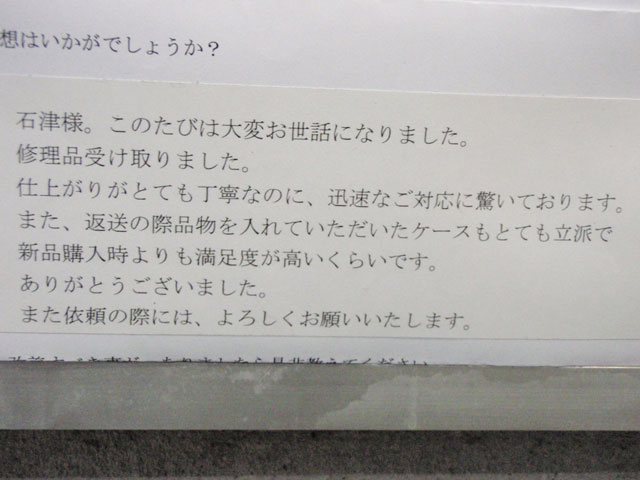 想はいかがでしょうか？
石津様。このたびは大変お世話になりました。
修理品受け取りました。
仕上がりがとても丁寧なのに、迅速なご対応に驚いております。
また、返送の際品物を入れていただいたケースもとても立派で
新品購入時よりも満足度が高いくらいです。
ありがとうございました。
また依頼の際には、よろしくお願いいたします。